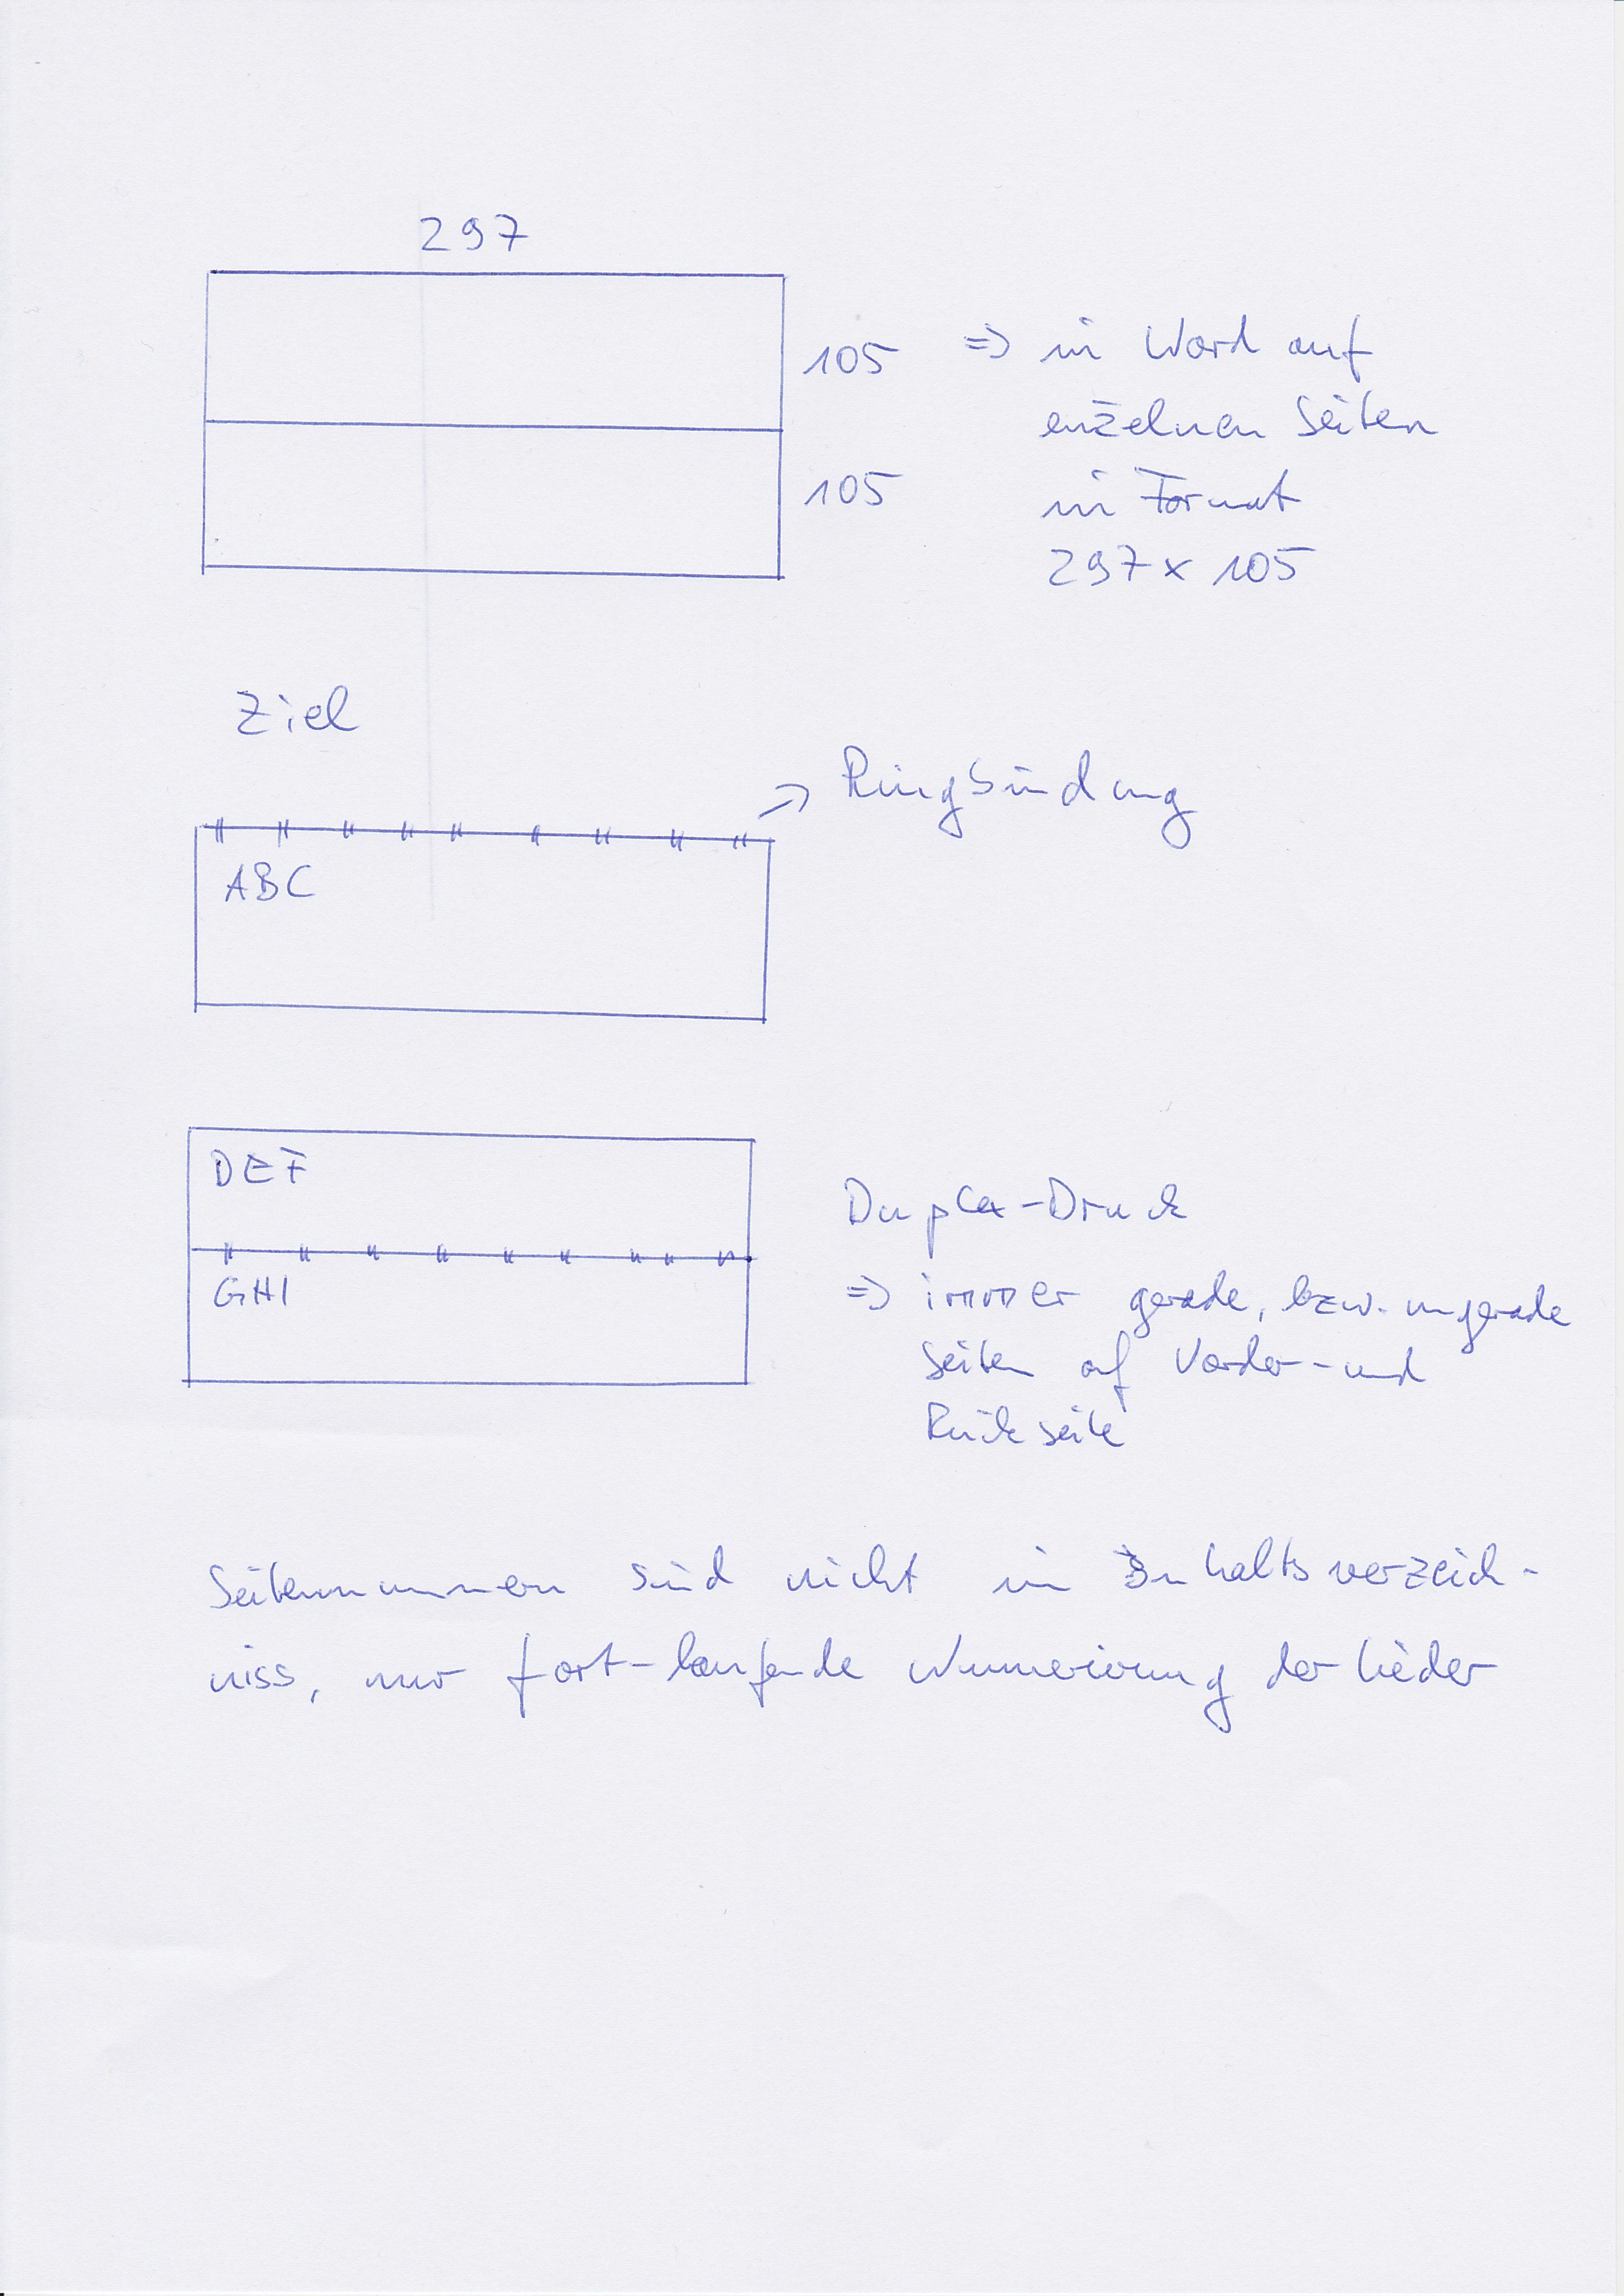 297
105 => in Word auf
einzelnen Seiten
105 in Format
297 x 105
Ziel
Ringbindung
ABC
DEF
Duplex-Druck
GHI
=> immer gerade, bzw. ungerade
Seiten auf Vorder- und
Rückseite
Seitennummern sind nicht im Inhaltsverzeich-
niss, nur fort-laufende Nummerierung der Lieder